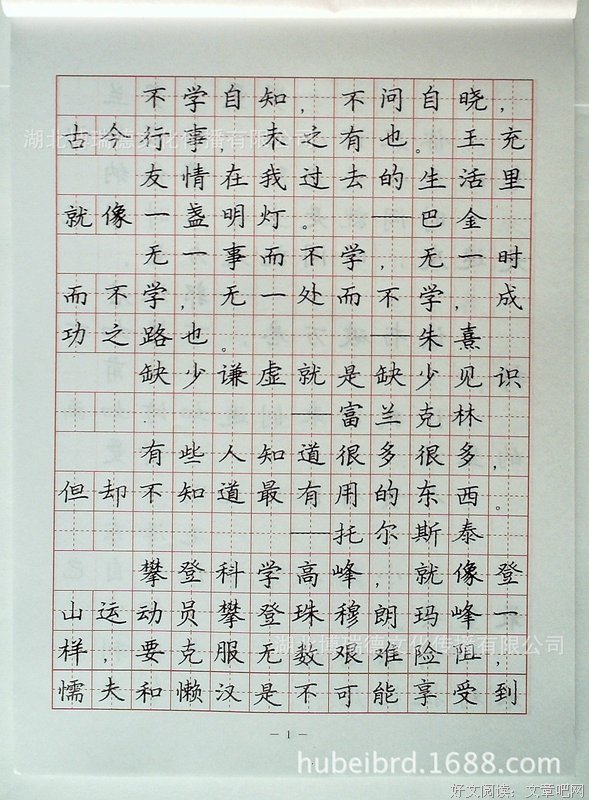 不学自知，不问自晓，
古今行事，未之有也。王充
友情在我过去的生活里
就像一盏明灯。——巴金
无一事而不学，无一时
而不学，无一处而不学，成
功之路也。——朱熹
缺少谦虚就是缺少见识
——富兰克林
有些人知道很多很多，
但却不知道最有用的东西。
——托尔斯泰
攀登科学高峰，就像登
山运动员攀登珠穆朗玛峰一
样，要克服无数艰难险阻，
懦夫和懒汉是不可能享受到
湖北博瑞德文化传播有限公司
湖北博瑞德文化传播有限公司
－1－
hubeibrd.1688.com
好文阅读：文章吧网